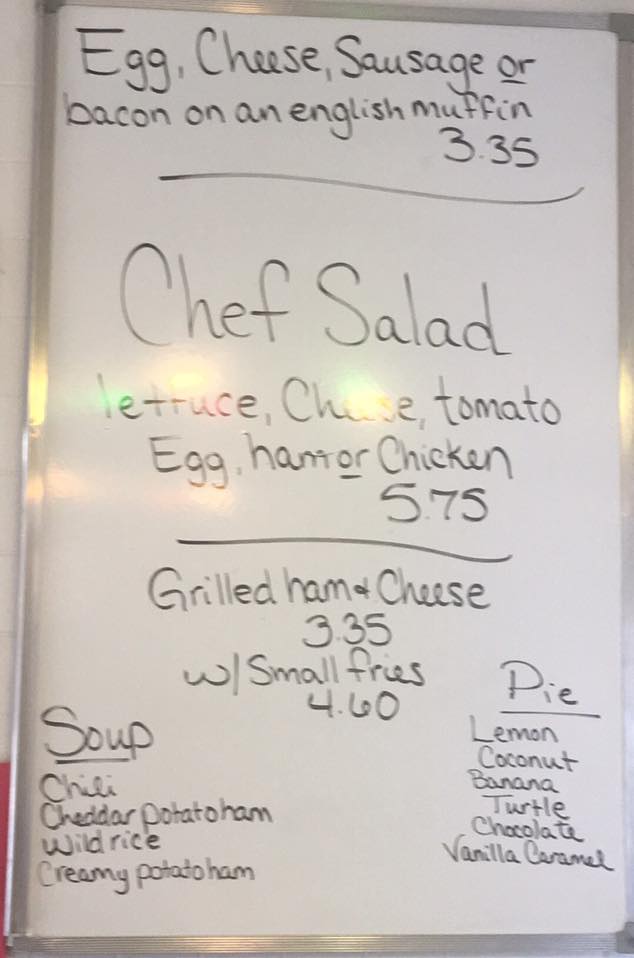 Egg, Cheese, Sausage or
bacon on an english muffin
3.35
Chef Salad
lettuce, Cheese, tomato
Egg, ham or Chicken
5.75
Grilled ham & Cheese
3.35
w/ Small fries
4.60
Soup
Chili
Cheddar potato ham
Wild rice
Creamy potato ham
Pie
Lemon
Coconut
Banana
Turtle
Chocolate
Vanilla Caramel